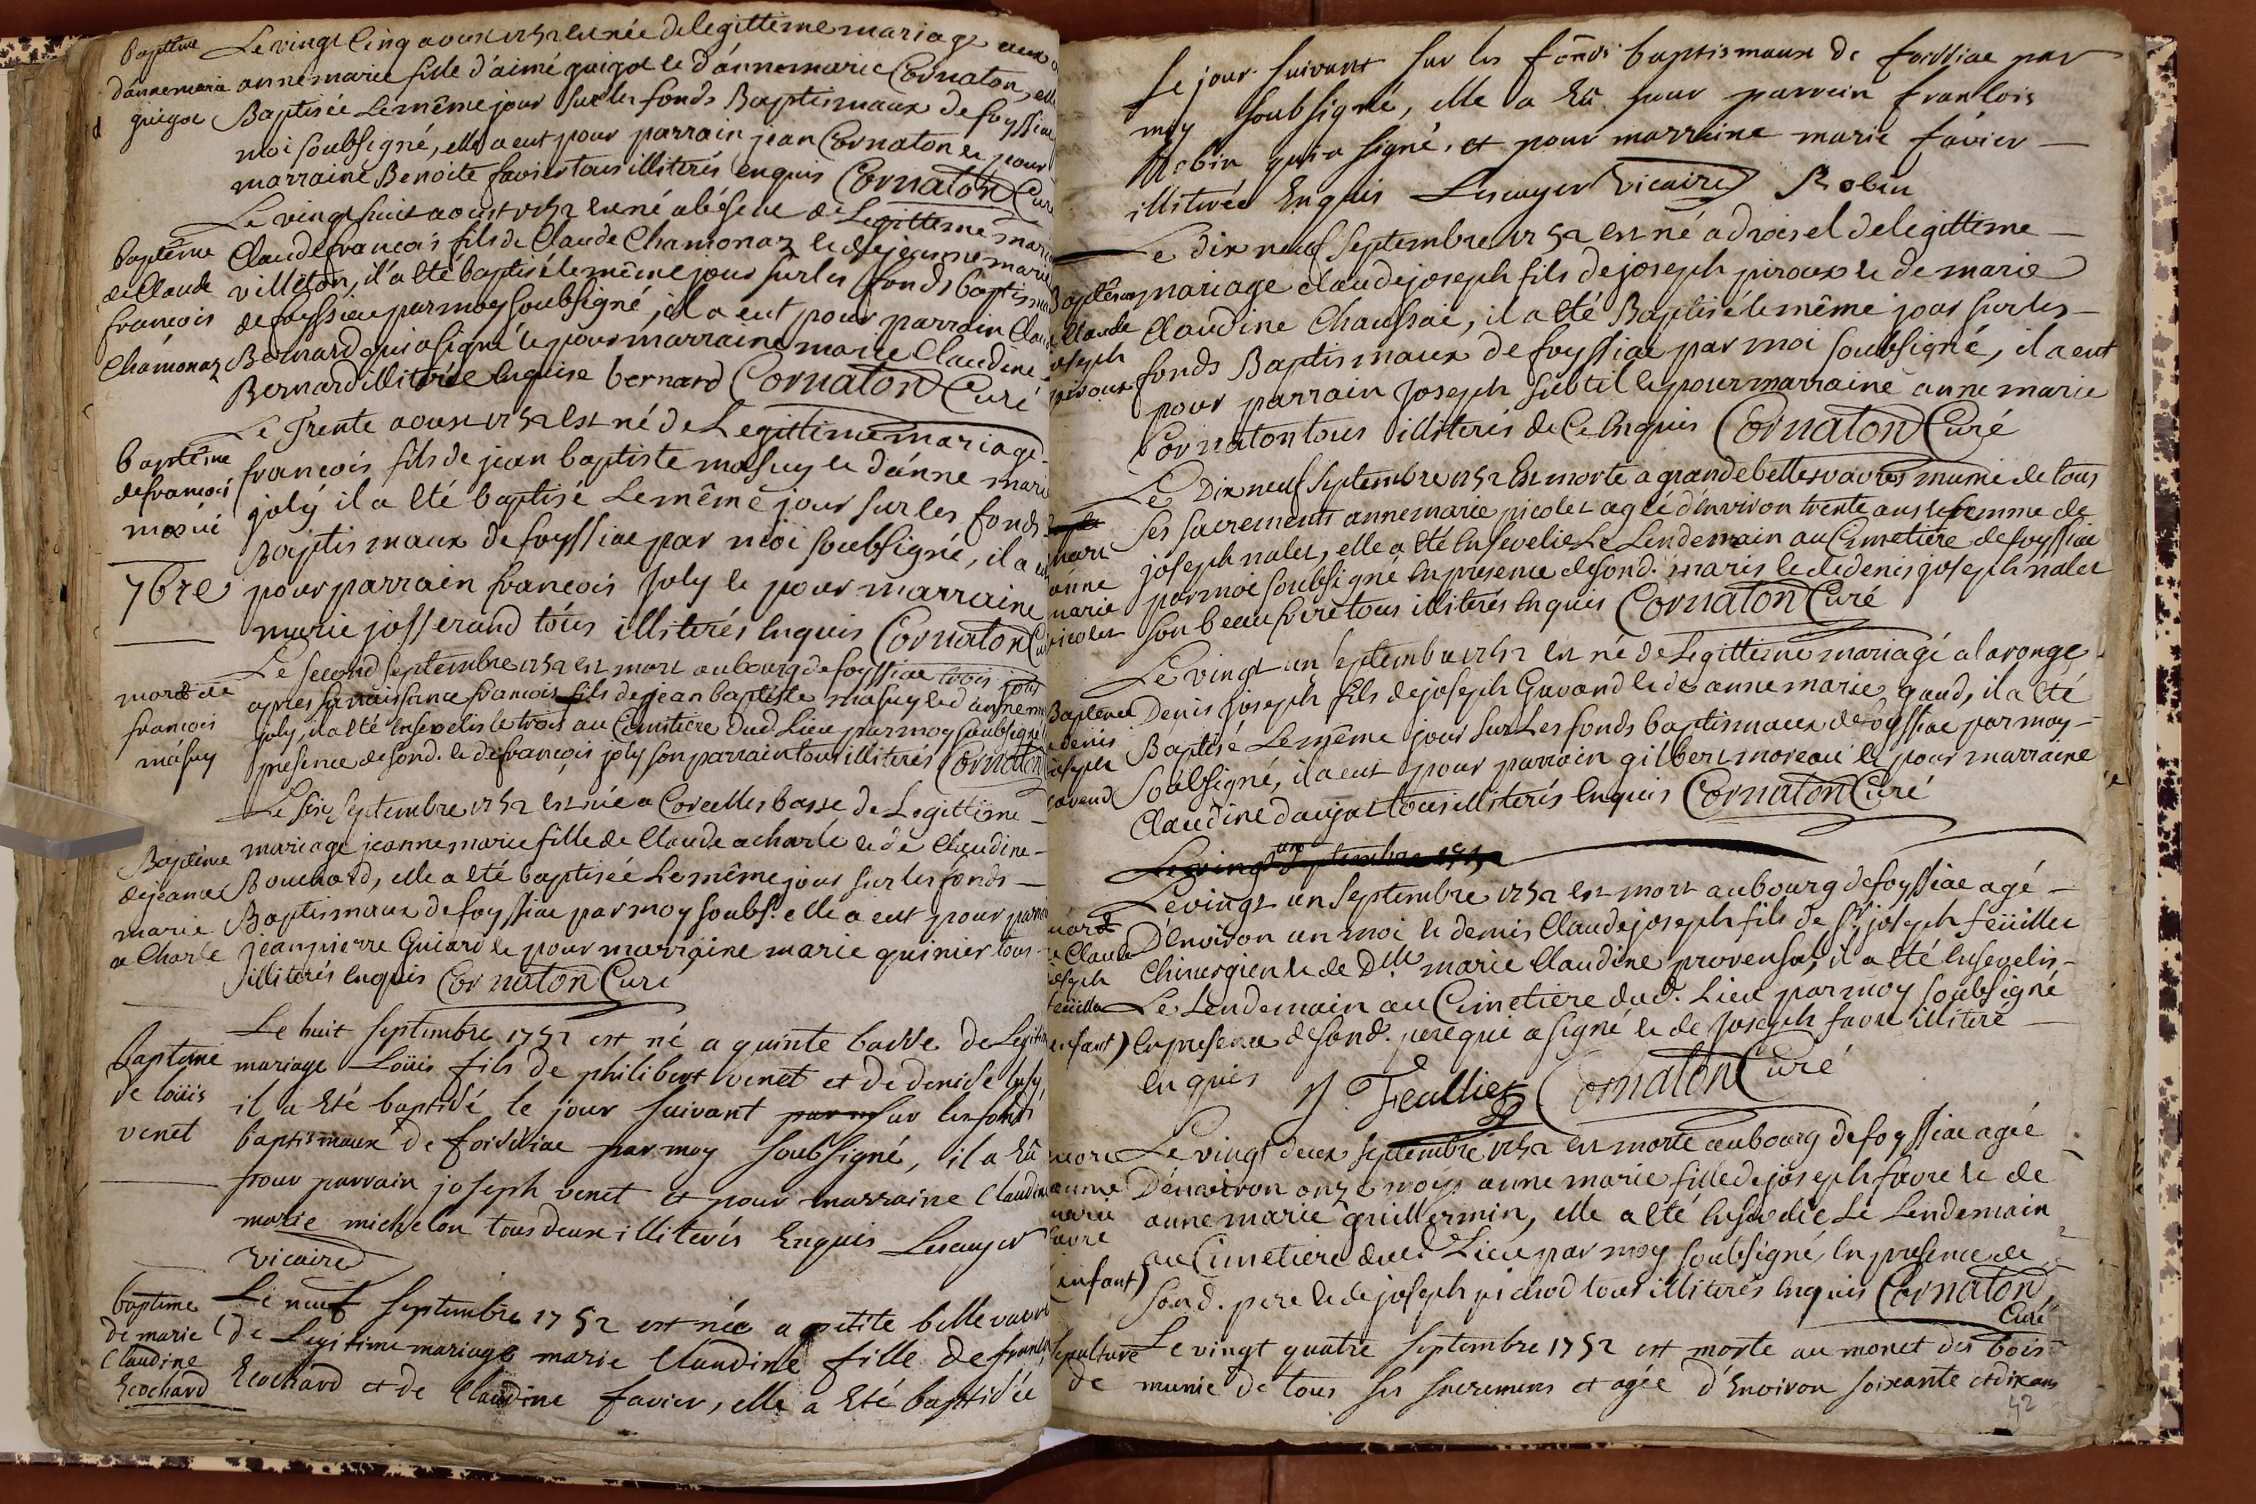 Baptême
d'annemarie
guigot
Le vingt cinq aoust 1752 est née de legittime mariage
annemarie fille d'aimé guigot et d'annemarie Cornaton, elle
Baptisée le même jour sur les fonds Baptismaux de foyssiac
moi soubsigné, elle a eut pour parrain jean Cornaton et pour
marraine Benoite favier tous illiterés enquis Cornaton Curé
baptême
de Claude
francois
Chamonaz
Le vingt huit aoust 1752 est né de Legittime
Claude francois fils de Claude Chamonaz et de jeanne marie
villeton, il a eté baptisé le même jour sur les fonds baptismaux
de foyssiac par moy soubsigné, il a eut pour parrain Claude
Bernard qui a signé et pour marraine marie Claudine
Bernard illiterée enquise bernard Cornaton Curé
baptême
de francois
masui
Le Trente aoust 1752 est né de Legittime mariage
francois fils de jean baptiste masuy et d'anne marie
joly il a eté baptisé le même jour sur les fonds
Baptismaux de foyssiac par moi soubsigné, il a eut
pour parrain francois joly et pour marraine
marie josserand tous illiterés enquis Cornaton
7bre
mort de
francois
masuy
Le second septembre 1752 est mort au bourg de foyssiac trois jours
apres sa naissance francois fils de jean baptiste masuy et d'anne
joly, il a eté ensevelis le trois au Cimitiere dud Lieu par moy soubsigné
presence de sond. et de francois joly son parrain tous illiterés Cornaton
Baptême
de jeanne
marie
a Charle
Le septembre 1752 est née a Corcelles basse de Legittime
mariage jeanne marie fille de Claude acharle et de Claudine
Bouchard, elle a eté baptisée le même jour sur les fonds
Baptismaux de foyssiac par moy soubs. elle a eut pour parrain
jeanpierre Guiard et pour marraine marie quinier tous
illiterés enquis Cornaton Curé
Baptême
de loüis
venet
Le huit septembre 1752 est né a quinte basse de Legitime
mariage Loüis fils de philibert venet et de denise
il a Eté baptisé le jour suivant sur les fonds
baptismaux de foissiac par moy soubsigné, il a Eû
pour parrain joseph venet et pour marraine Claudine
marie michelon tous deux illiterés Enquis Lescuyer
vicaire
baptême
de marie
Claudine
Ecochard
Le neuf septembre 1752 est née a petite belle vavre
de Legitime mariage marie Claudine fille de francois
Ecochard et de Claudine favier, elle a Eté baptisée
Le jour suivant sur les fonds baptismaux de foissiac par
moy soubsigné, elle a Eû pour parrein francois
Robin qui a signé, et pour marraine marie favier
illiterée Enquis Lescuyer vicaire Robin
Baptême
Claude
joseph
piroux
Le dix neuf septembre 1752 est né a droisel de legittime
mariage claude joseph fils de joseph piroux et de marie
Claudine Chaussac, il a eté Baptisé le même jour sur les
fonds Baptismaux de foyssiac par moi soubsigné, il a eut
pour parrain Joseph subtil et pour marraine anne marie
Cornaton tous illiterés de Ce enquis Cornaton Curé
mort
anne
marie
picolet
Le Dix neuf septembre 1752 est morte a grande bellesvavres munie de tous
ses sacrements annemarie picolet agée d'environ trente ans femme de
joseph nalet, elle a eté ensevelie le Lendemain au Cimetiere de foyssiac
par moi soubsigné en presence de sond. maris et de denis joseph nalet
son beau frere tous illiterés enquis Cornaton Curé
Baptême
denis
joseph
Gavand
Le vingt un septembre 1752 est né de Legittime mariage a laronge
Denis joseph fils de joseph Gavand et de anne marie gaud, il a eté
Baptisé le même jour sur les fonds baptismaux de foyssiac par moy
soubsigné, il a eut pour parrain gilbert moreau et pour marraine
Claudine daujat tous illiterés enquis Cornaton Curé
Le vingt un septembre 1752
mort
Claude
joseph
feüillet
enfant)
Le vingt un septembre 1752 est mort au bourg de foyssiac agé
D'environ un moi et demis Claude joseph fils de Sr joseph feüillet
Chirurgien et de Dlle marie Claudine provensal, il a eté ensevelis
Le Lendemain au Cimetiere dud. Lieu par moy soubsigné
en presence de sond. pere qui a signé et de Joseph favre illiteré
enquis J. Feulliet Cornaton Curé
mort
anne
marie
favre
(enfant)
Le vingt deux septembre 1752 est morte au bourg de foyssiac agée
D'environ onze mois anne marie fille de joseph favre et de
anne marie guillermin, elle a eté ensevelie le Lendemain
au Cimetiere dud Lieu par moy soubsigné en presence de
sond. pere et de joseph pichod tous illiterés enquis Cornaton
Curé
sepulture
de
Le vingt quatre septembre 1752 est morte au monet des bois
munie de tous ses sacremens et agée d'Environ soixante et dix ans
42